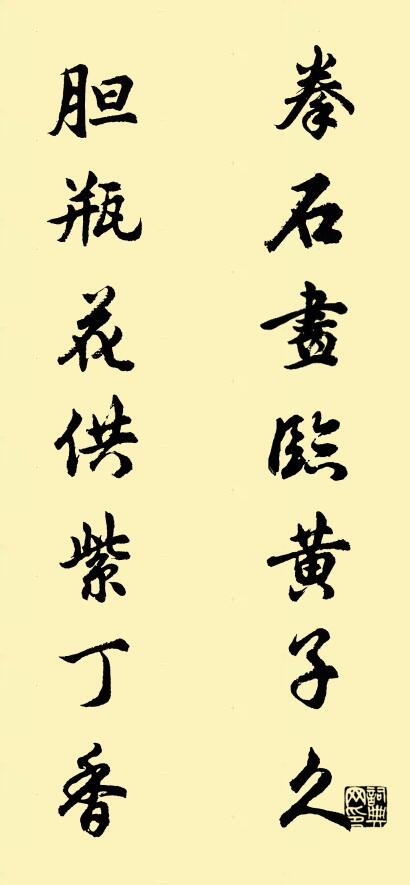 拳石畫臨黄子久
胆瓶花供紫丁香
詞典网印